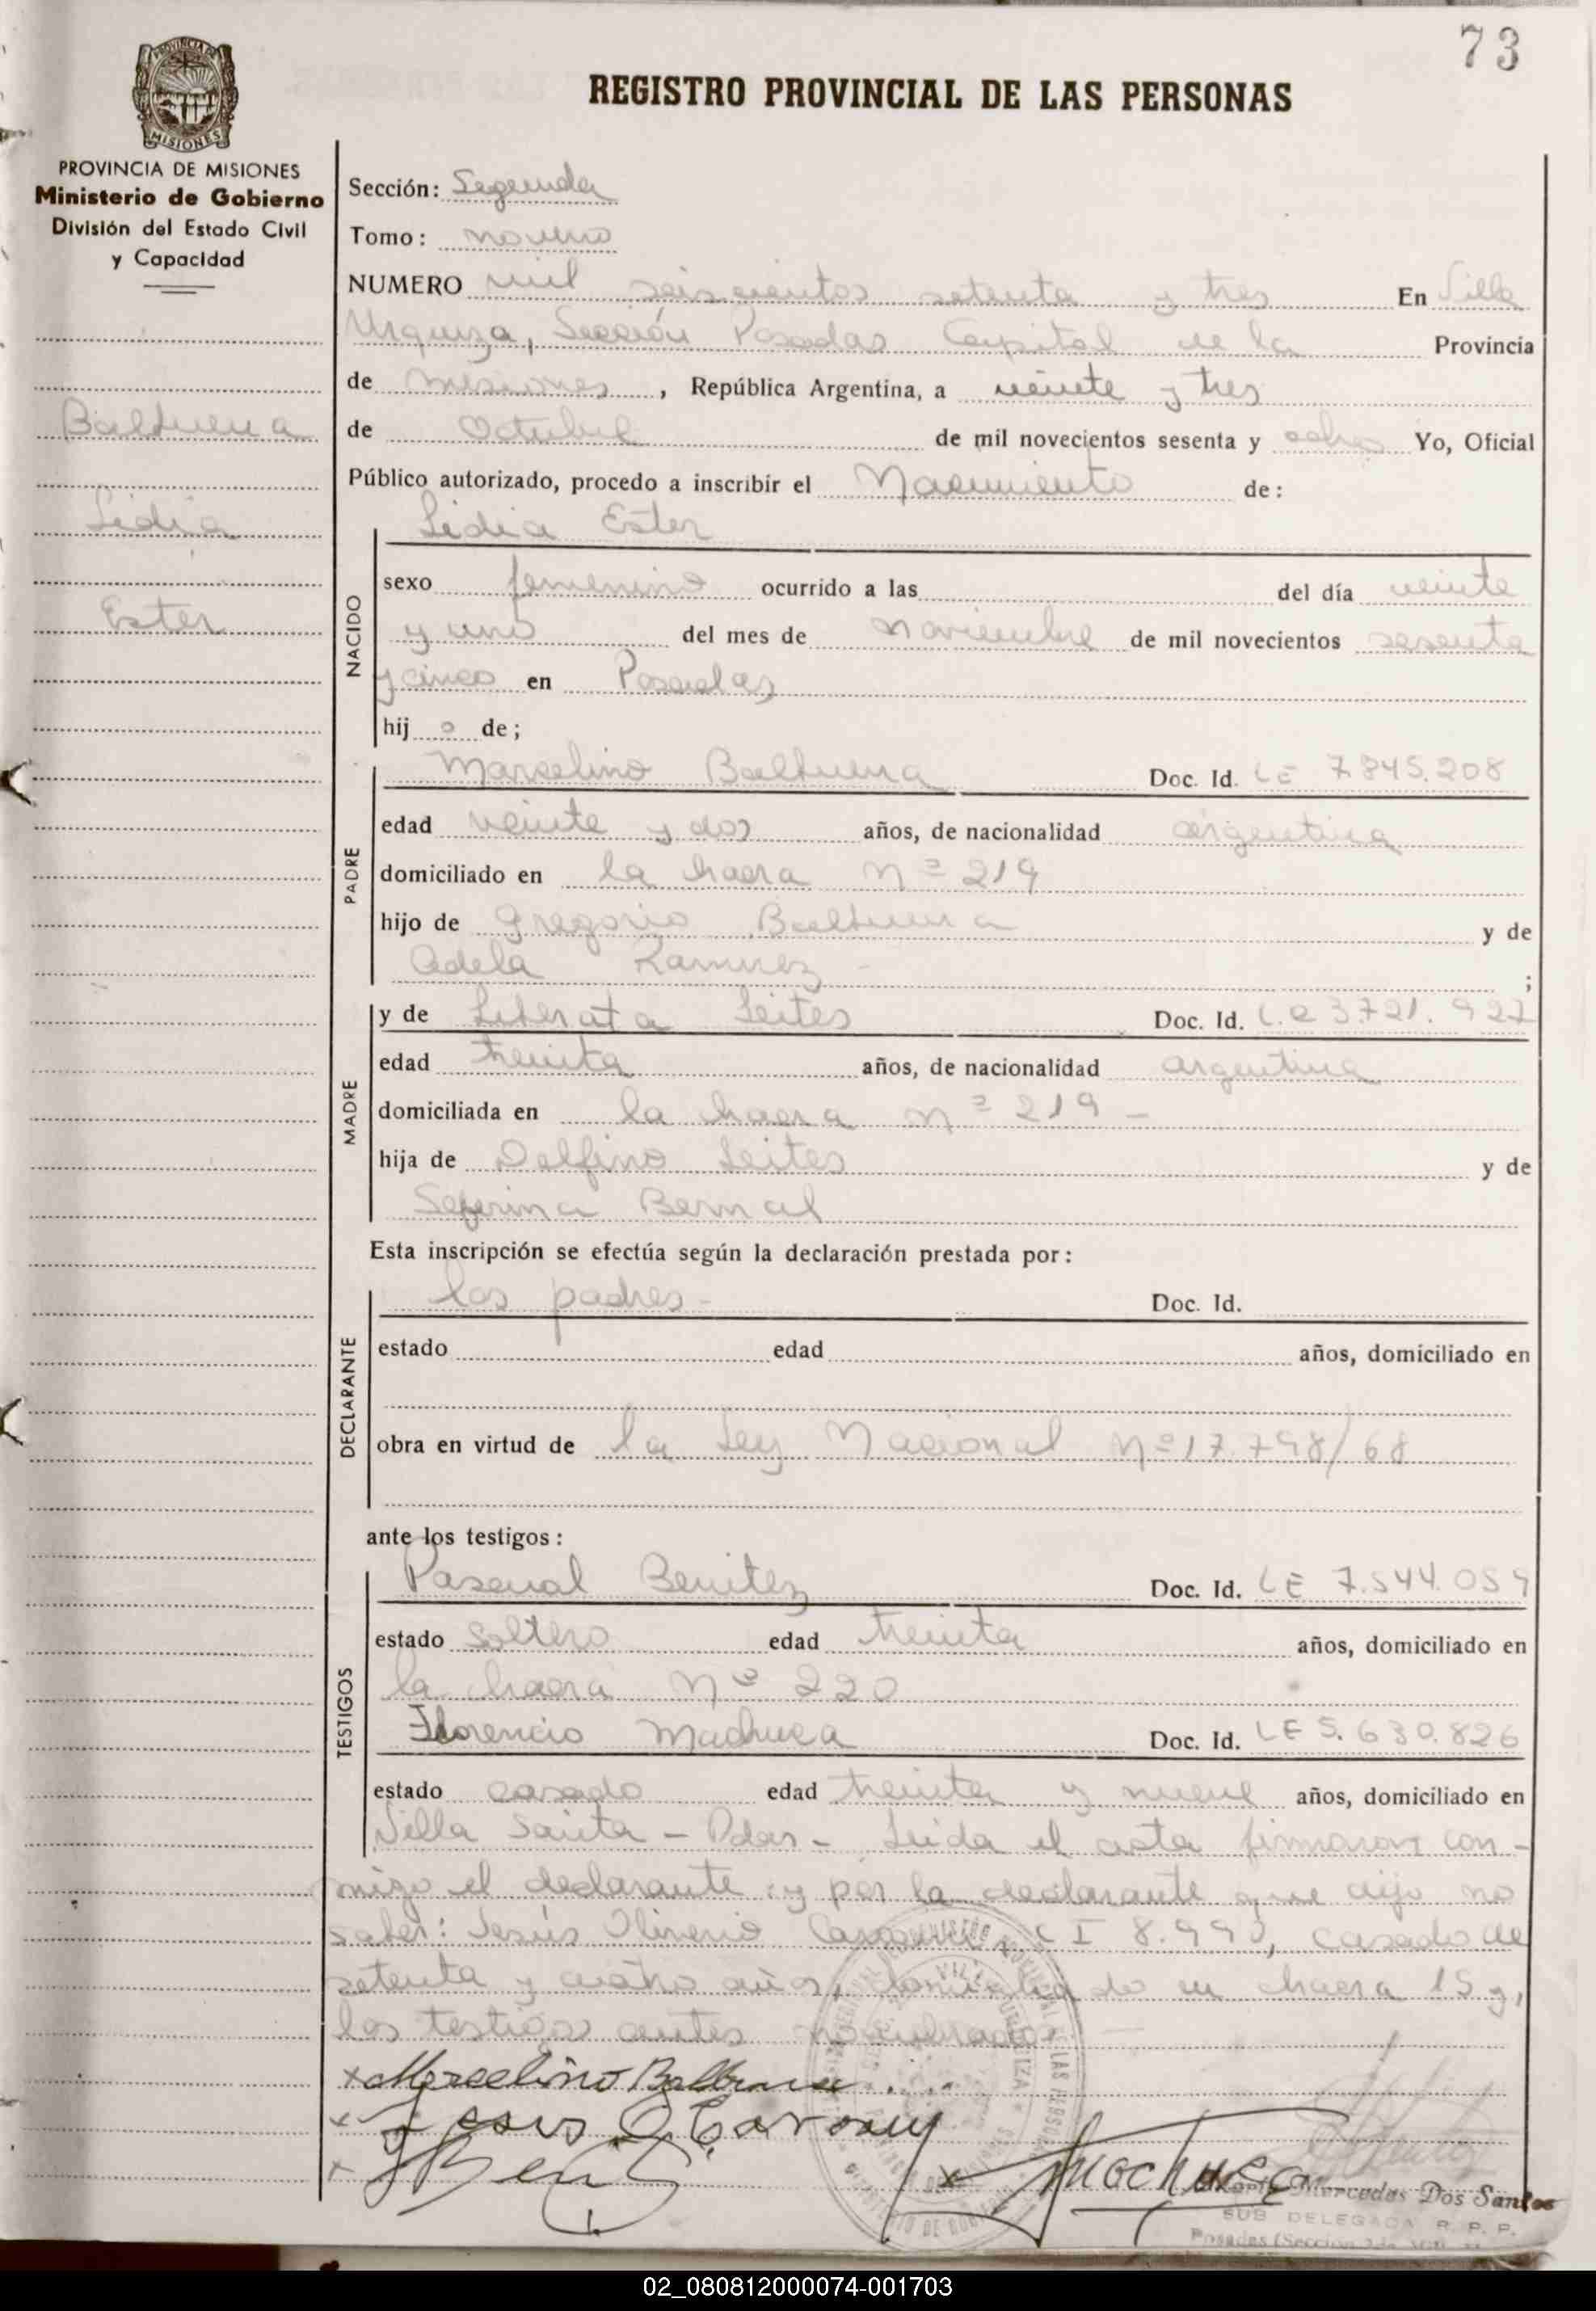 73
REGISTRO PROVINCIAL DE LAS PERSONAS
PROVINCIA DE MISIONES
Ministerio de Gobierno
División del Estado Civil
y Capacidad
Balbuena
Lidia
Ester
Sección: Segunda
Tomo: noveno
NUMERO mil seiscientos setenta y tres En Villa
Urquiza, Sección Posadas Capital de la Provincia
de Misiones, República Argentina, a veinte y tres
de Octubre de mil novecientos sesenta y ocho Yo, Oficial
Público autorizado, procedo a inscribir el Nacimiento de:
Lidia Ester
NACIDO
sexo femenino ocurrido a las del día veinte
y uno del mes de noviembre de mil novecientos sesenta
y cinco en Posadas
hij a de;
PADRE
Marcelino Balbuena Doc. Id. LE 7.845.208
edad veinte y dos años, de nacionalidad argentina
domiciliado en la chacra nº 219
hijo de Gregorio Balbuena y de
Adela Ramirez - ;
MADRE
y de Liberata Leites Doc. Id. L.C 3.721.927
edad treinta años, de nacionalidad argentina
domiciliada en la chacra nº 219 -
hija de Delfino Leites y de
Seferina Bernal
Esta inscripción se efectúa según la declaración prestada por:
DECLARANTE
los padres - Doc. Id.
estado edad años, domiciliado en
obra en virtud de la Ley Nacional Nº 17.798/68
ante los testigos:
TESTIGOS
Pascual Benitez Doc. Id. LE 7.544.059
estado soltero edad treinta años, domiciliado en
la chacra nº 220
Florencio Machuca Doc. Id. LE 5.630.826
estado casado edad treinta y nueve años, domiciliado en
Villa Sarita - Pdas - Leida el acta firmaron con-
migo el declarante y por la declarante que dijo no
saber: Jesús Oliverio CI 8.993, casado de
setenta y cuatro años, domiciliado en chacra 15 y,
los testigos antes nombrados -
x Marcelino Balbuena
x Jesus O.
x Ben
x Machuca
Mercedes Dos Santos
SUB DELEGADA R. P. P.
Posadas (Sección
02_080812000074-001703